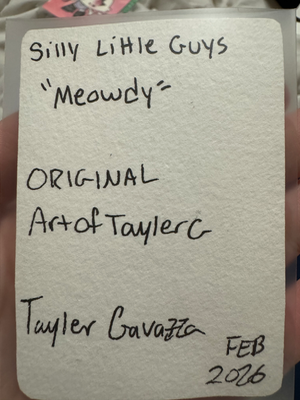 Silly Little Guys
"Meowdy"
ORIGINAL
Art of TaylerG
Tayler Gavazza
FEB
2026